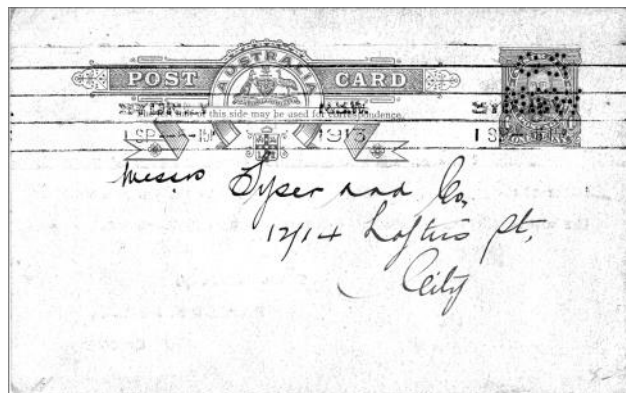 POST AUSTRALIA CARD
of this side may be used for correspondence.
SYDNEY
1 SP 1913
Messrs Tyser and Co.
12/14 Loftus St,
City